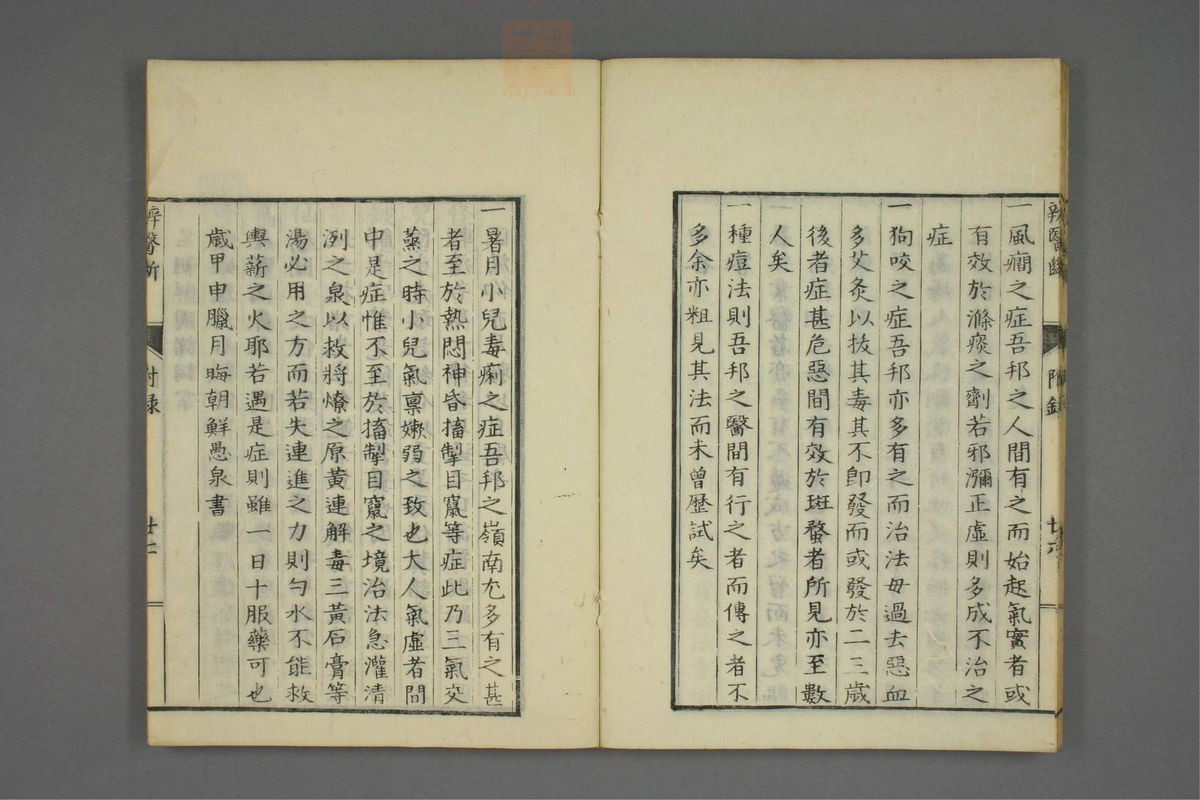 一風癇之症吾邦之人間有之而始起氣實者或
有效於滌痰之劑若邪瀰正虛則多成不治之
症
一狗咬之症吾邦亦多有之而治法毋過去惡血
多艾灸以拔其毒其不卽發而或發於二三歲
後者症甚危惡間有效於斑蝥者所見亦至數
人矣
一種痘法則吾邦之醫間有行之者而傳之者不
多余亦粗見其法而未曾歷試矣
附錄
廿六
一暑月小兒毒痢之症吾邦之嶺南尤多有之甚
者至於熱悶神昏搐掣目竄等症此乃三氣交
蒸之時小兒氣禀嫩弱之致也大人氣虛者間
中是症惟不至於搐掣目竄之境治法急灌清
冽之泉以救將燎之原黃連解毒三黃石膏等
湯必用之方而若失連進之力則勺水不能救
輿薪之火耶若遇是症則雖一日十服藥可也
歲甲申臘月晦朝鮮愚泉書
附錄
廿七